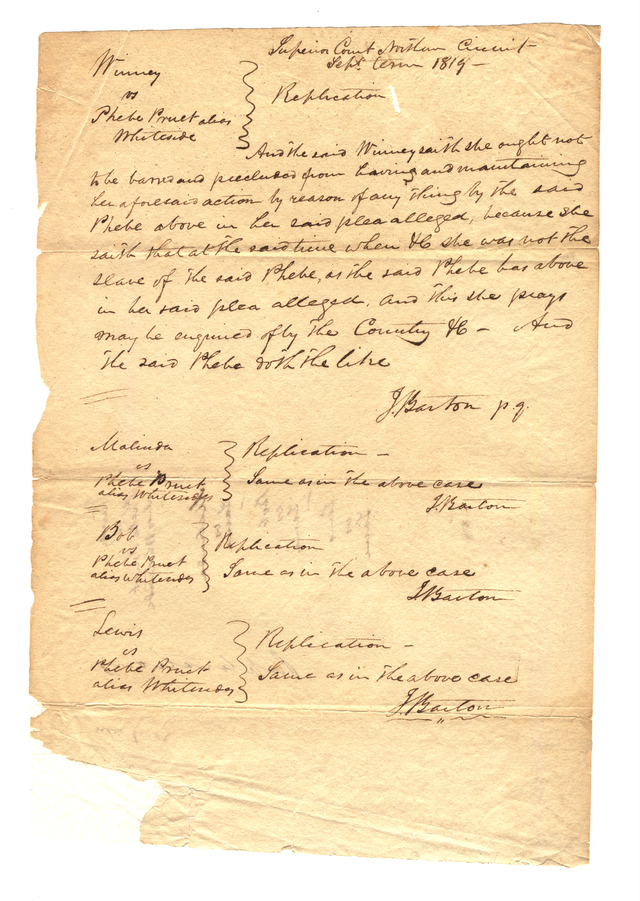 Superior Court Northern Circuit
Sept. term 1819 -
Winney
vs
Phebe Pruet alias
Whiteside
Replication
And the said Winney saith she ought not
to be barred and precluded from having and maintaining
her aforesaid action by reason of any thing by the said
Phebe above in her said plea alleged, because she
saith that at the said time when &c she was not the
slave of the said Phebe, as the said Phebe has above
in her said plea alleged, and this she prays
may be enquired of by the Country &c - And
the said Phebe doth the like
J. Barton p.q.
Malinda
vs
Phebe Pruet
alias Whitesides
Replication -
Same as in the above case
J. Barton
Bob
vs
Phebe Pruet
alias Whitesides
Replication
Same as in the above case
J. Barton
Lewis
vs
Phebe Pruet
alias Whitesides
Replication -
Same as in the above case
J. Barton